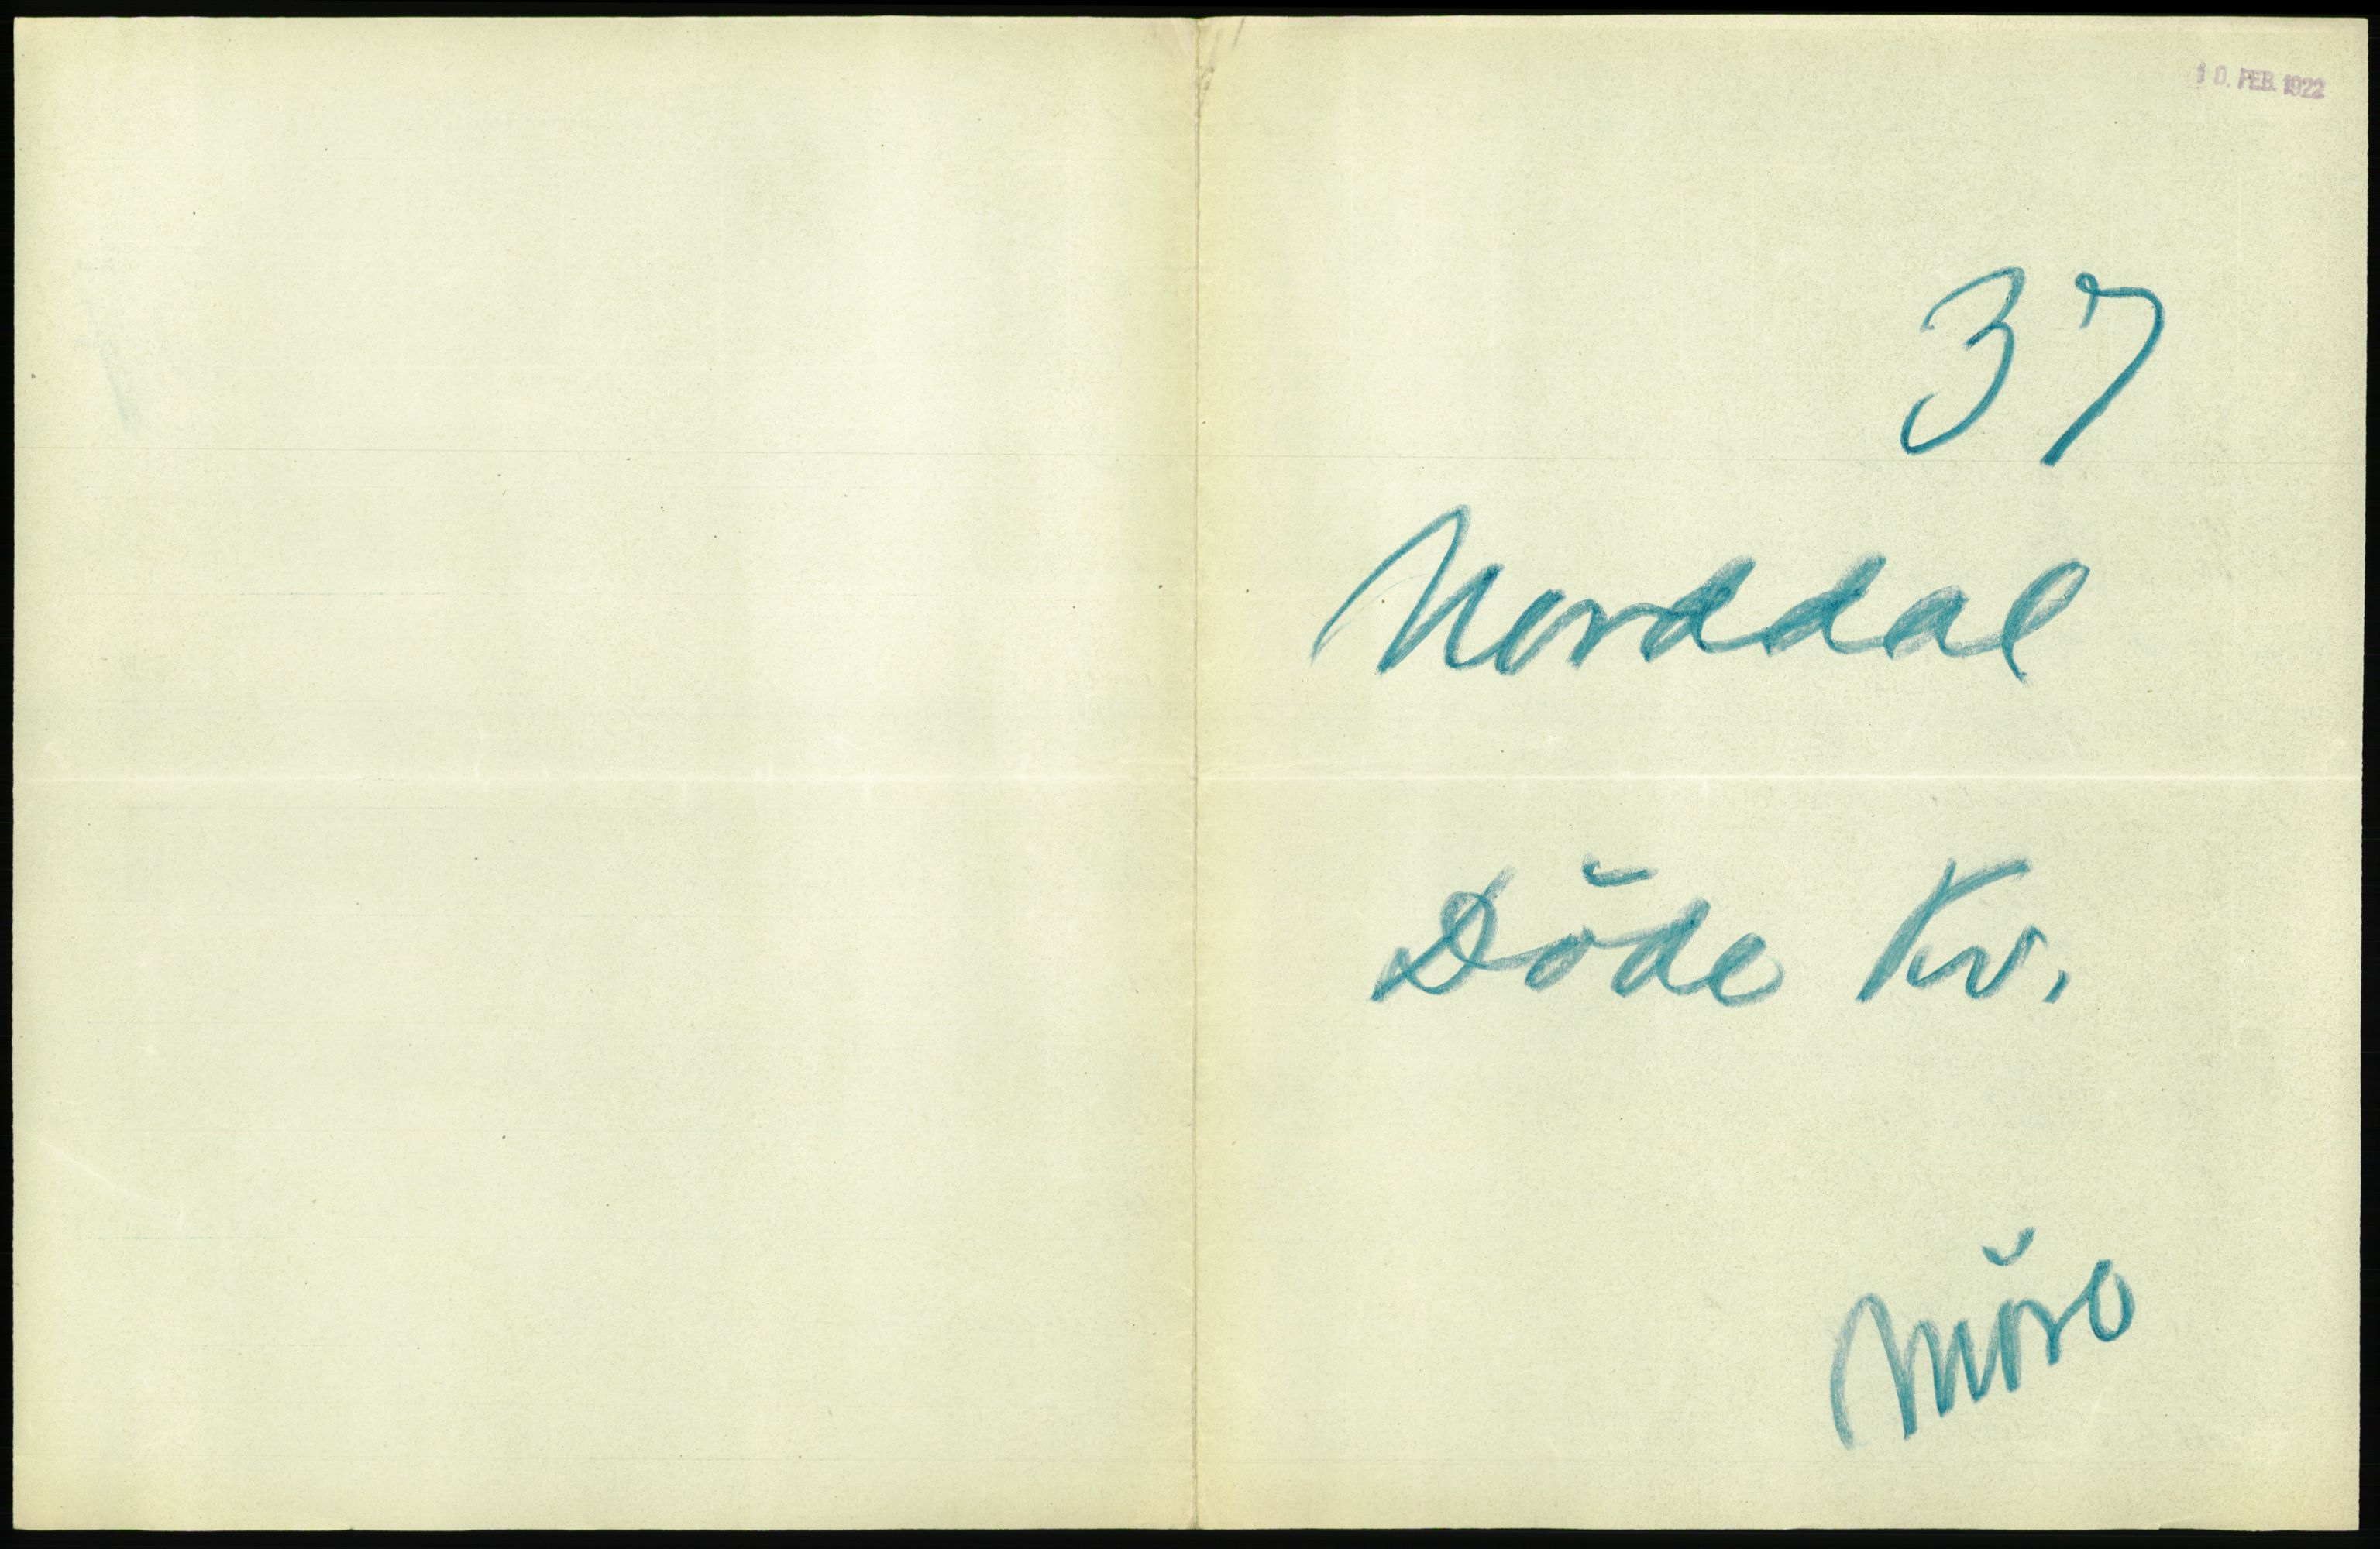 10. FEB. 1922
37
Norddal
Döde Kv.
Möre